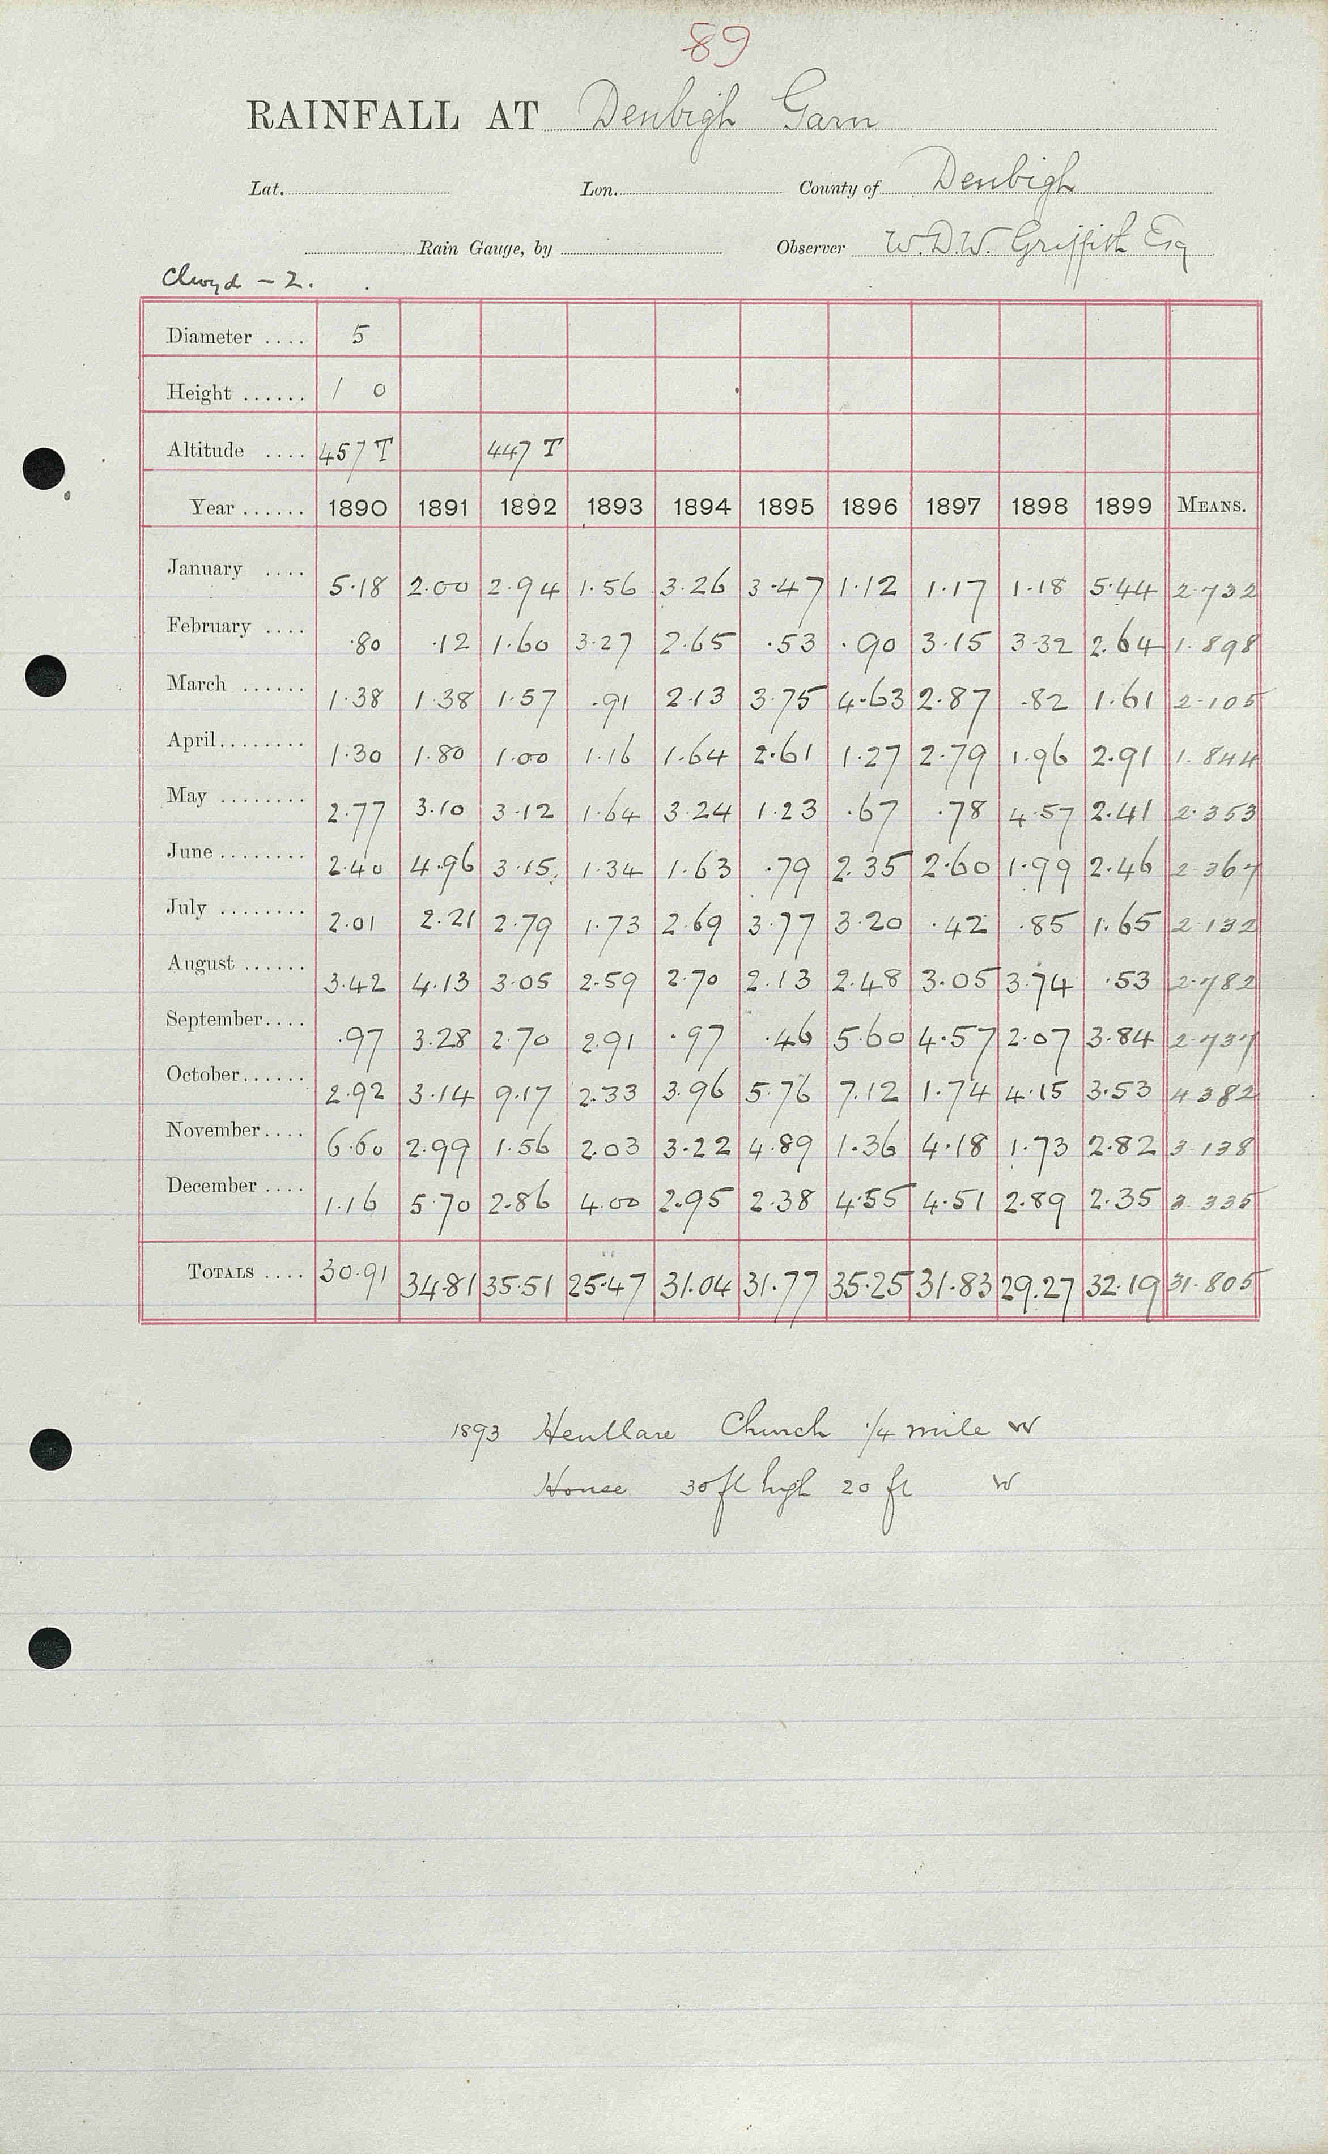 89
RAINFALL AT Denbigh Garn
Lat. Lon. County of Denbigh
Rain Gauge, by Observer W.D.W. Griffith Esq
Clwyd - 2.
Diameter .... 5
Height ...... 1 0
Altitude .... 457 T 447 T
Year ...... 1890 1891 1892 1893 1894 1895 1896 1897 1898 1899 MEANS.
January .... 5.18 2.00 2.94 1.56 3.26 3.47 1.12 1.17 1.18 5.44 2.732
February .... .80 .12 1.60 3.27 2.65 .53 .90 3.15 3.32 2.64 1.898
March ...... 1.38 1.38 1.57 .91 2.13 3.75 4.63 2.87 .82 1.61 2.105
April ........ 1.30 1.80 1.00 1.16 1.64 2.61 1.27 2.79 1.96 2.91 1.844
May ........ 2.77 3.10 3.12 1.64 3.24 1.23 .67 .78 4.57 2.41 2.353
June ........ 2.40 4.96 3.15 1.34 1.63 .79 2.35 2.60 1.99 2.46 2.367
July ........ 2.01 2.21 2.79 1.73 2.69 3.77 3.20 .42 .85 1.65 2.132
August ...... 3.42 4.13 3.05 2.59 2.70 2.13 2.48 3.05 3.74 .53 2.782
September .... .97 3.28 2.70 2.91 .97 .46 5.60 4.57 2.07 3.84 2.737
October ...... 2.92 3.14 9.17 2.33 3.96 5.76 7.12 1.74 4.15 3.53 4.382
November .... 6.60 2.99 1.56 2.03 3.22 4.89 1.36 4.18 1.73 2.82 3.138
December .... 1.16 5.70 2.86 4.00 2.95 2.38 4.55 4.51 2.89 2.35 3.335
TOTALS .... 30.91 34.81 35.51 25.47 31.04 31.77 35.25 31.83 29.27 32.19 31.805
1893 Henllare Church 1/4 mile W
House 30 ft high 20 ft W